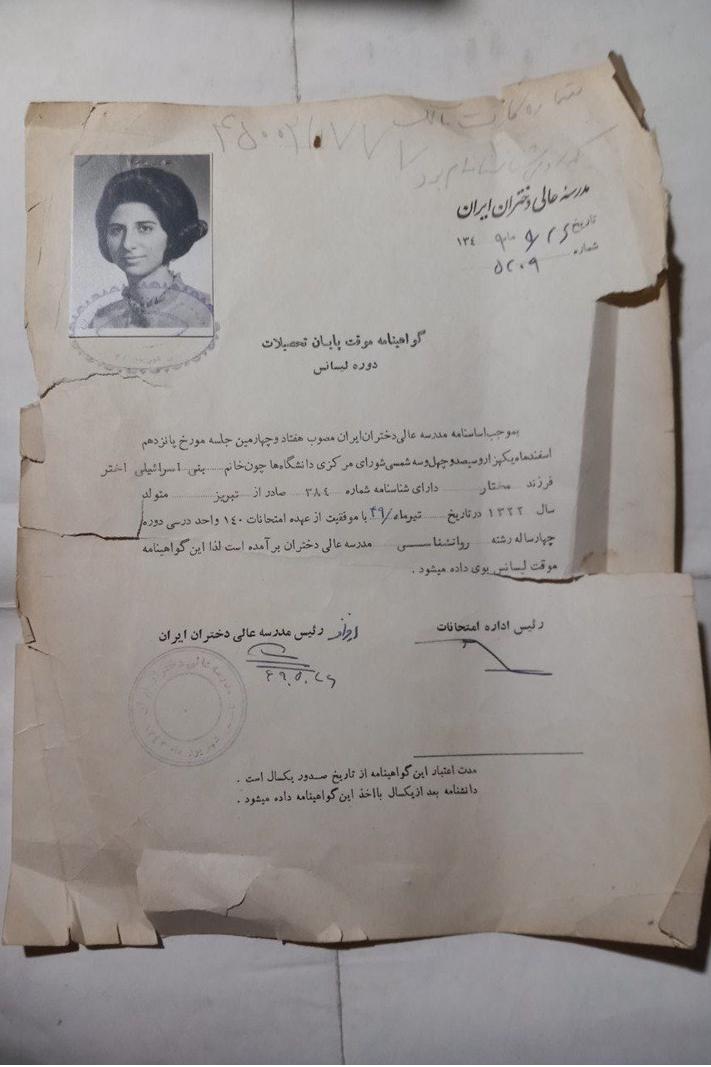 شماره کارت ملی
مدرسه عالی دختران ایران
تاریخ ۲۶ / ۵ ماه ۱۳۴۹
شماره ۵۲۰۹
گواهینامه موقت پایان تحصیلات
دوره لیسانس
بموجب اساسنامه مدرسه عالی دختران ایران مصوب هفتاد و چهارمین جلسه مورخ پانزدهم
اسفندماه یکهزار و سیصد و چهل و سه شمسی شورای مرکزی دانشگاه‌ها چون خانم بنی اسرائیلی اختر
فرزند مختار دارای شناسنامه شماره ۳۸۴ صادر از تبریز متولد
سال ۱۳۲۲ در تاریخ تیرماه/۴۹ با موفقیت از عهده امتحانات ۱۴۰ واحد درسی دوره
چهارساله رشته روانشناسی مدرسه عالی دختران بر آمده است لذا این گواهینامه
موقت لیسانس بوی داده میشود .
رئیس اداره امتحانات
رئیس مدرسه عالی دختران ایران
۴۹.۵.۲۶
مدرسه عالی دختران ایران
مدت اعتبار این گواهینامه از تاریخ صدور یکسال است .
دانشنامه بعد از یکسال با اخذ این گواهینامه داده میشود .